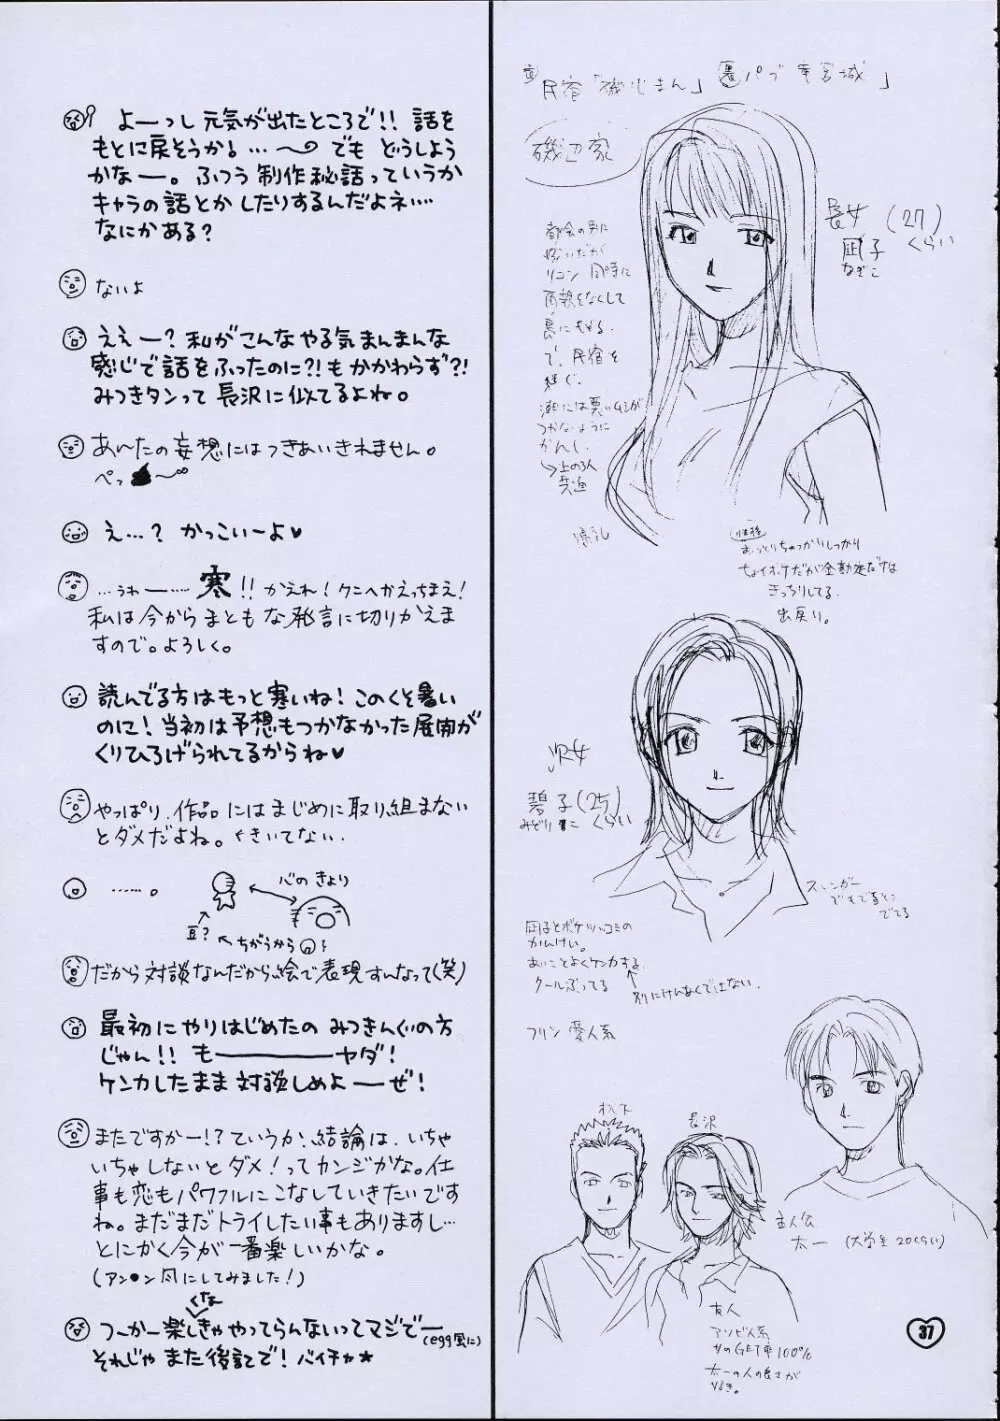 よーっし 元気が出たところで!! 話を
もとに戻そうか! …〜 でも どうしよう
かなー。ふつう 制作秘話っていうか
キャラの話とか したりするんだよネ……
なにかある?
ないよ
ええー? 私がこんなやる気まんまんな
感じで話をふったのに?! もかかわらず?!
みつきタンって 長沢に似てるよね。
あんたの妄想にはつきあいきれません。
ぺっ
え…? かっこいーよ♥
…うわー…… 寒!! かえれ! クニへかえっちまえ!
私は今からまともな発言に切りかえま
すので。よろしく。
読んでる方はもっと寒いね! このくそ暑い
のに! 当初は予想もつかなかった展開が
くりひろげられてるからね♥
やっぱり、作品にはまじめに取り組まない
とダメだよね。くきいてない.
……。
心のきょり
豆?
ちがうから
だから対談なんだから絵で表現すんなって(笑)
最初にやりはじめたの みつきんぐの方
じゃん!! もーーーーヤダ!
ケンカしたまま対談しめよーぜ!
またですかー!? ていうか、結論は、いちゃ
いちゃしないとダメ!ってカンジかな。仕
事も恋もパワフルにこなしていきたいです
ね。まだまだトライしたい事もありますし…
とにかく今が一番楽しいかな。
(アン●ン風にしてみました!)
つーかー楽しきゃやってらんないってマジでー
くな
(egg風に)
それじゃ また後記で! バイチャ★
民宿「磯じまん」
磯辺家
長女 (27)
くらい
凪子
なぎこ
都会の男に
嫁いだが
リコン 同時に
両親をなくして
島にもどる.
で、民宿を
継ぐ.
つかないように
かんし
爆乳
性格
おっとりちゃっかりしっかり
ちょイボケだが金勘定だけは
きっちりしてる.
出戻り.
次女
碧子(25)
くらい
スレンダー
でもでるとこ
でてる
凪子とボケツッコミの
かんけい。
あいことよくケンカする
クールぶってる
別にけんあくではない.
フリン 愛人系
松下
長沢
主人公
太一 (大学生 20くらい)
友人
アソビ人系
女のGET率100%
太一の人の良さが
好き。
37